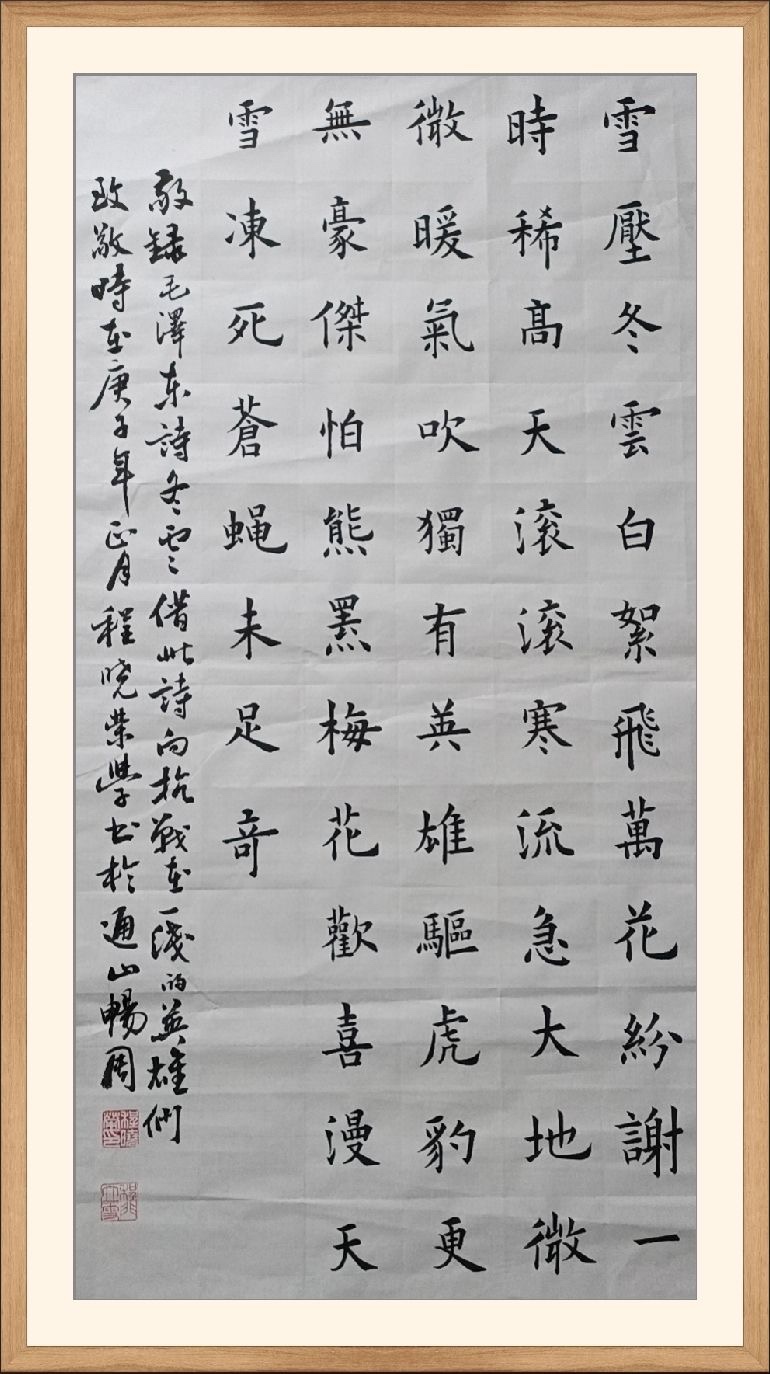 雪壓冬雲白絮飛萬花紛謝一
時稀髙天滚滚寒流急大地微
微暖氣吹獨有英雄驅虎豹更
無豪傑怕熊羆梅花歡喜漫天
雪凍死蒼蝇未足竒
敬録毛澤东詩冬雲借此詩向抗戰在一綫的英雄們
致敬時在庚子年正月程晓荣學书於通山暢周